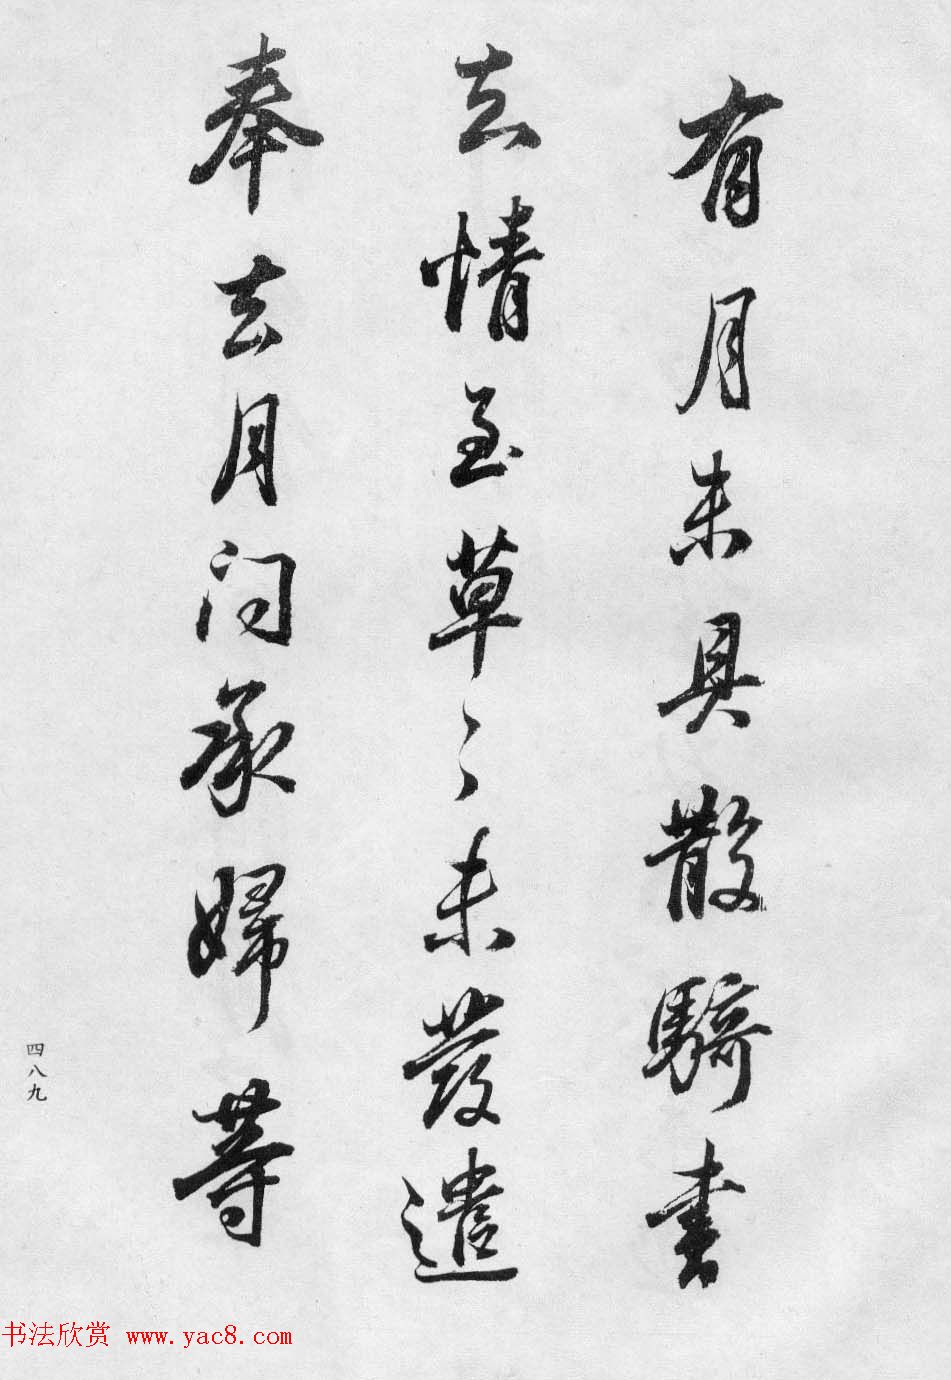 有月未具散騎書
去情至草〻未發遣
奉去月問承婦等
四八九
书法欣赏 www.yac8.com